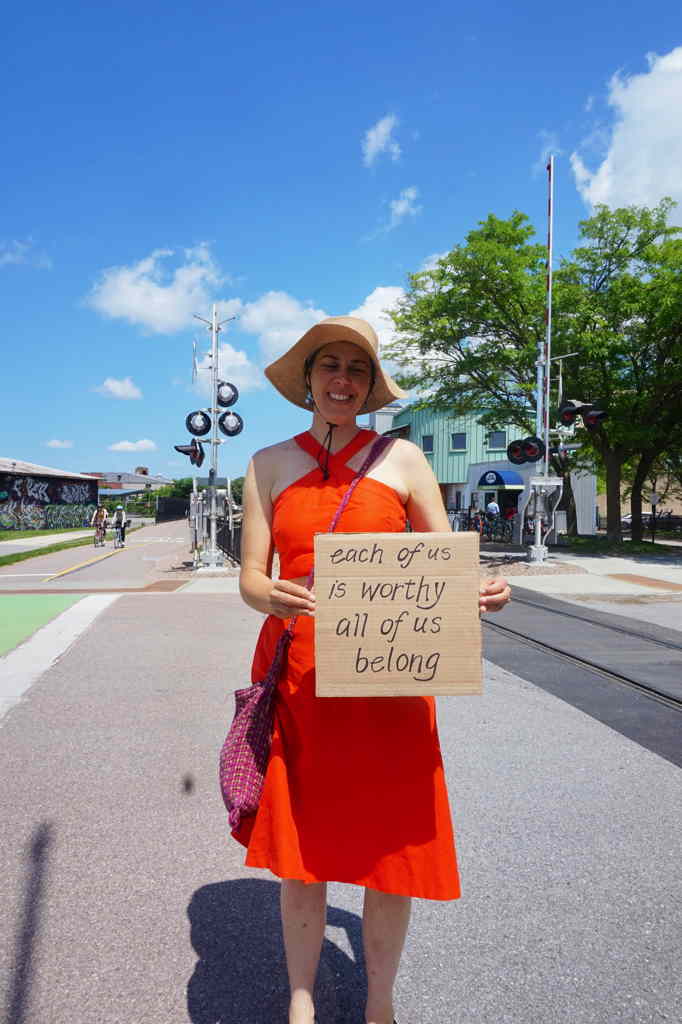 each of us
is worthy
all of us
belong